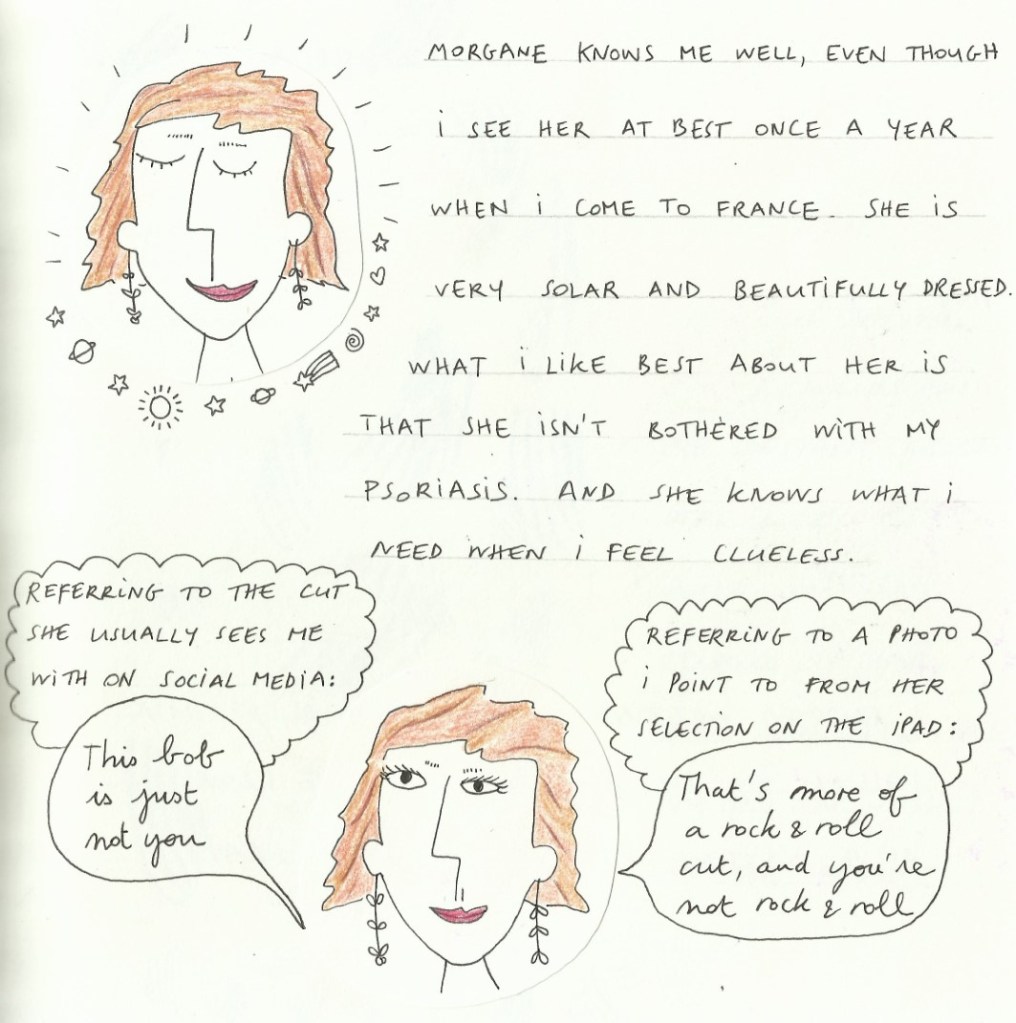 MORGANE KNOWS ME WELL, EVEN THOUGH
i SEE HER AT BEST ONCE A YEAR
WHEN i COME TO FRANCE. SHE IS
VERY SOLAR AND BEAUTIFULLY DRESSED.
WHAT i LIKE BEST ABOUT HER IS
THAT SHE ISN'T BOTHERED WITH MY
PSORIASIS. AND SHE KNOWS WHAT i
NEED WHEN i FEEL CLUELESS.
REFERRING TO THE CUT
SHE USUALLY SEES ME
WITH ON SOCIAL MEDIA:
This bob
is just
not you
REFERRING TO A PHOTO
i POINT TO FROM HER
SELECTION ON THE iPAD:
That's more of
a rock & roll
cut, and you're
not rock & roll